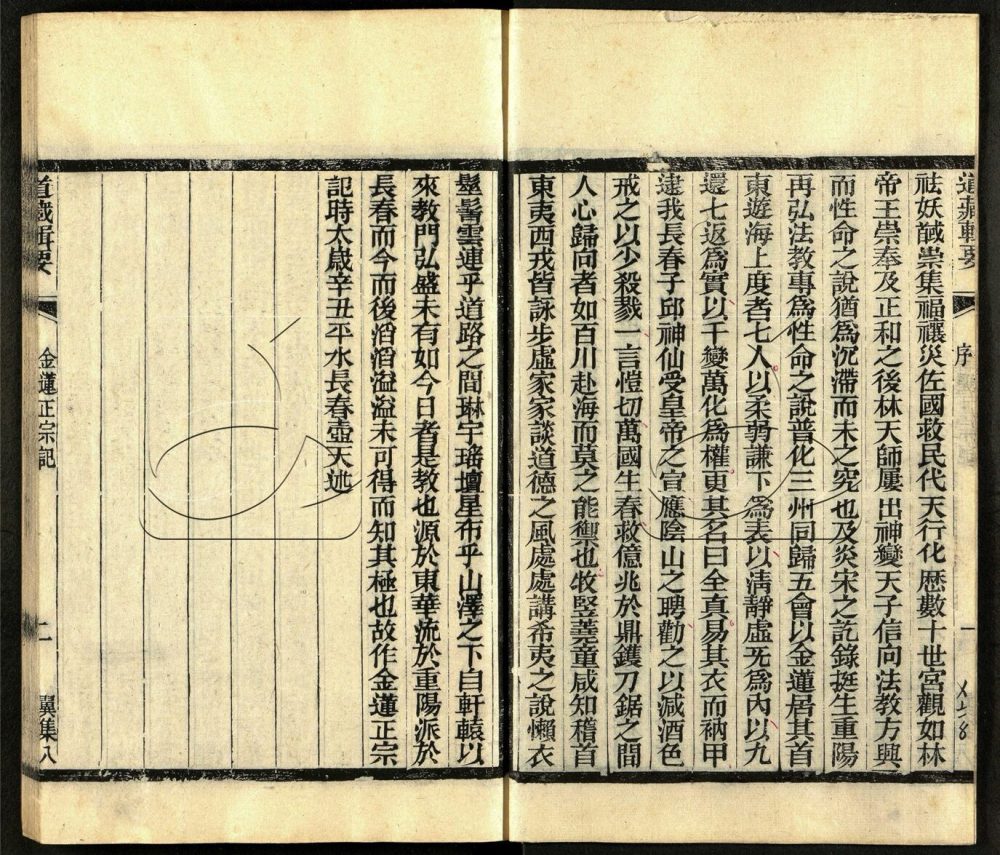 道藏輯要 序 一
祛妖馘祟集福禳災佐國救民代天行化歷數十世宮觀如林
帝王崇奉及正和之後林天師屢出神變天子信向法教方興
而性命之說猶爲沉滯而未之究也及炎宋之訖錄挺生重陽
再弘法教專爲性命之說普化三州同歸五會以金蓮居其首
東遊海上度者七人以柔弱謙下爲表以清靜虛无爲內以九
還七返爲實以千變萬化爲權更其名曰全真易其衣而衲甲
逮我長春子邱神仙受皇帝之宣應陰山之聘勸之以減酒色
戒之以少殺戮一言愷切萬國生春救億兆於鼎鑊刀鋸之間
人心歸向者如百川赴海而莫之能禦也牧竪蕘童咸知稽首
東夷西戎皆詠步虛家家談道德之風處處講希夷之說懶衣
髽髻雲連乎道路之間琳宇瑤壇星布乎山澤之下自軒轅以
來教門弘盛未有如今日者是教也源於東華流於重陽派於
長春而今而後滔滔溢溢未可得而知其極也故作金蓮正宗
記時太歲辛丑平水長春壺天述
道藏輯要 金蓮正宗記 二 翼集八